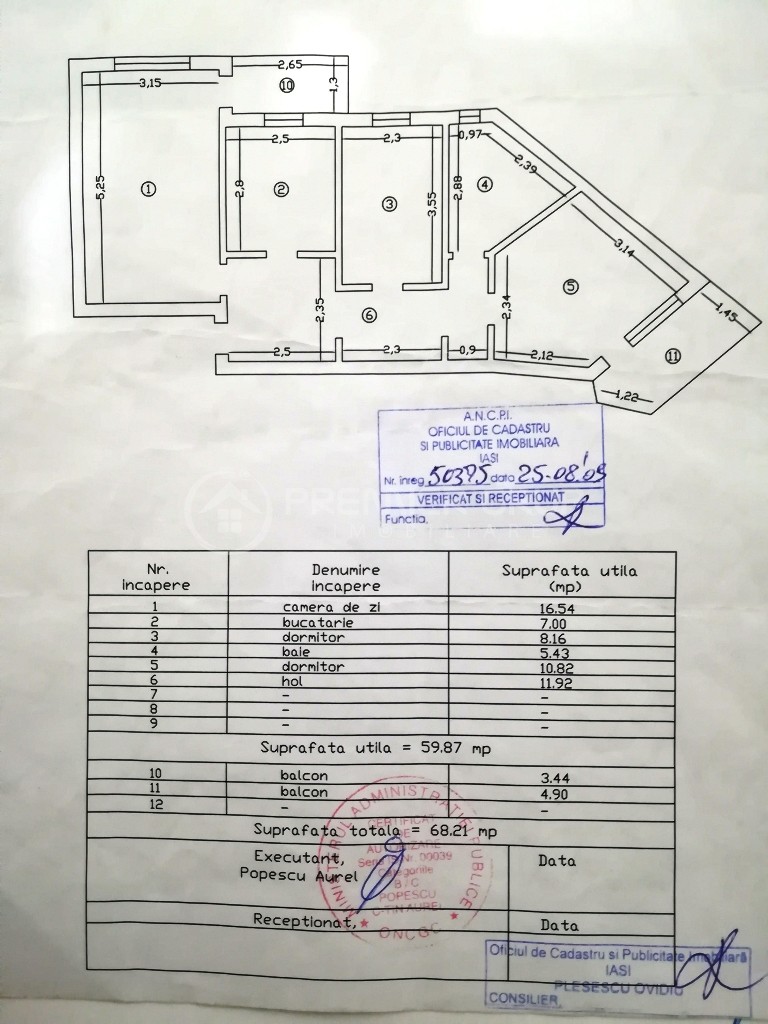 2,65
10
1,3
3,15
5,25
1
2,5
2,8
2
2,3
3
3,55
0,97
2,88
4
2,39
3,14
5
2,34
2,35
6
2,5
2,3
0,9
2,12
1,45
11
1,22
A.N.C.P.I.
OFICIUL DE CADASTRU
SI PUBLICITATE IMOBILIARA
IASI
Nr. inreg. 50375 data 25-08'09
VERIFICAT SI RECEPTIONAT
Functia.
Nr. incapere Denumire incapere Suprafata utila (mp)
1 camera de zi 16.54
2 bucatarie 7.00
3 dormitor 8.16
4 baie 5.43
5 dormitor 10.82
6 hol 11.92
7 - -
8 - -
9 - -
Suprafata utila = 59.87 mp
10 balcon 3.44
11 balcon 4.90
12 - -
Suprafata totala = 68.21 mp
Executant, Data
Popescu Aurel
MINISTERUL ADMINISTRATIEI PUBLICE
CERTIFICAT
DE
AUTORIZARE
Seria Nr. 00039
Categoriile
B / C
POPESCU
C-TIN AUREL
ONCGC
Receptionat, Data
Oficiul de Cadastru si Publicitate Imobiliară
IASI
PLESESCU OVIDIU
CONSILIER,